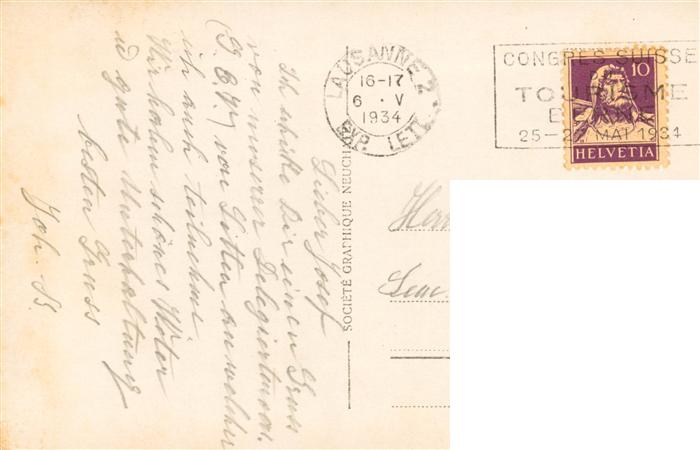 Lieber Josef
Ich schicke Dir einen Gruss
von unserer Delegiertenvers.
von Sitten an welcher
ich auch teilnehme
Wir haben schönes Wetter
u gute Unterhaltung
besten Gruss
Joh. B.
SOCIÉTÉ GRAPHIQUE NEUCH
LAUSANNE 2
16-17
6 · V
1934
EXP. LETT.
CONGRES SUISSE
TOURISME
25-27 MAI 1934
10
HELVETIA
Herrn